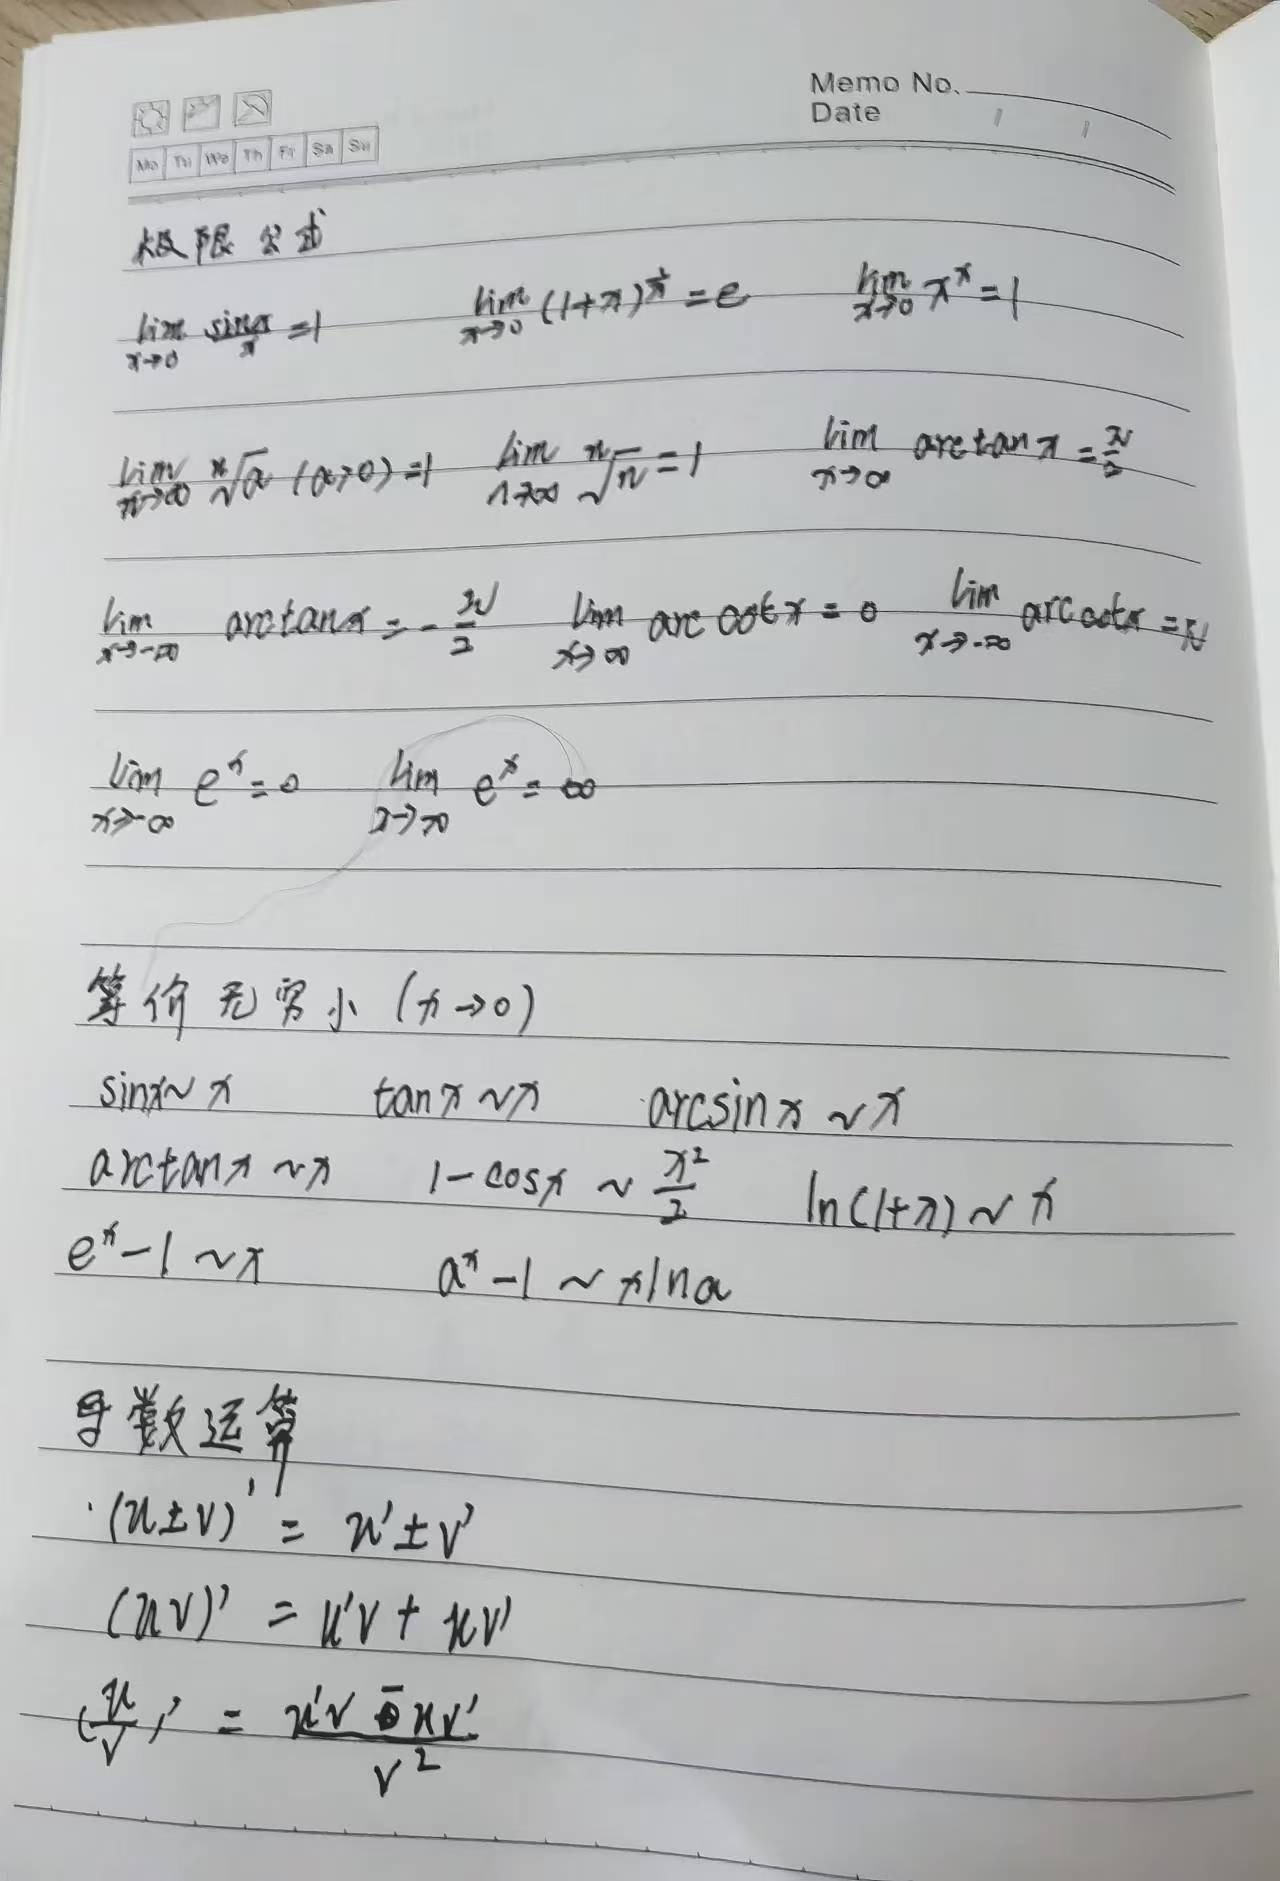 Memo No.
Date / /
Mo Tu We Th Fr Sa Su
极限公式
lim x→0 sinx/x =1 lim x→0 (1+x)^(1/x) = e lim x→0 x^x = 1
lim n→∞ ⁿ√a (a>0) =1 lim n→∞ ⁿ√n = 1 lim x→∞ arctan x = π/2
lim x→-∞ arctan x = -π/2 lim x→∞ arc cot x = 0 lim x→-∞ arc cot x = π
lim x→-∞ e^x = 0 lim x→∞ e^x = ∞
等价无穷小 (x→0)
sinx~x tanx~x arcsinx~x
arctanx~x 1-cosx~x²/2 ln(1+x)~x
e^x-1~x a^x-1~xlna
导数运算
(u±v)' = u'±v'
(uv)' = u'v + uv'
(u/v)' = (u'v - uv')/v²